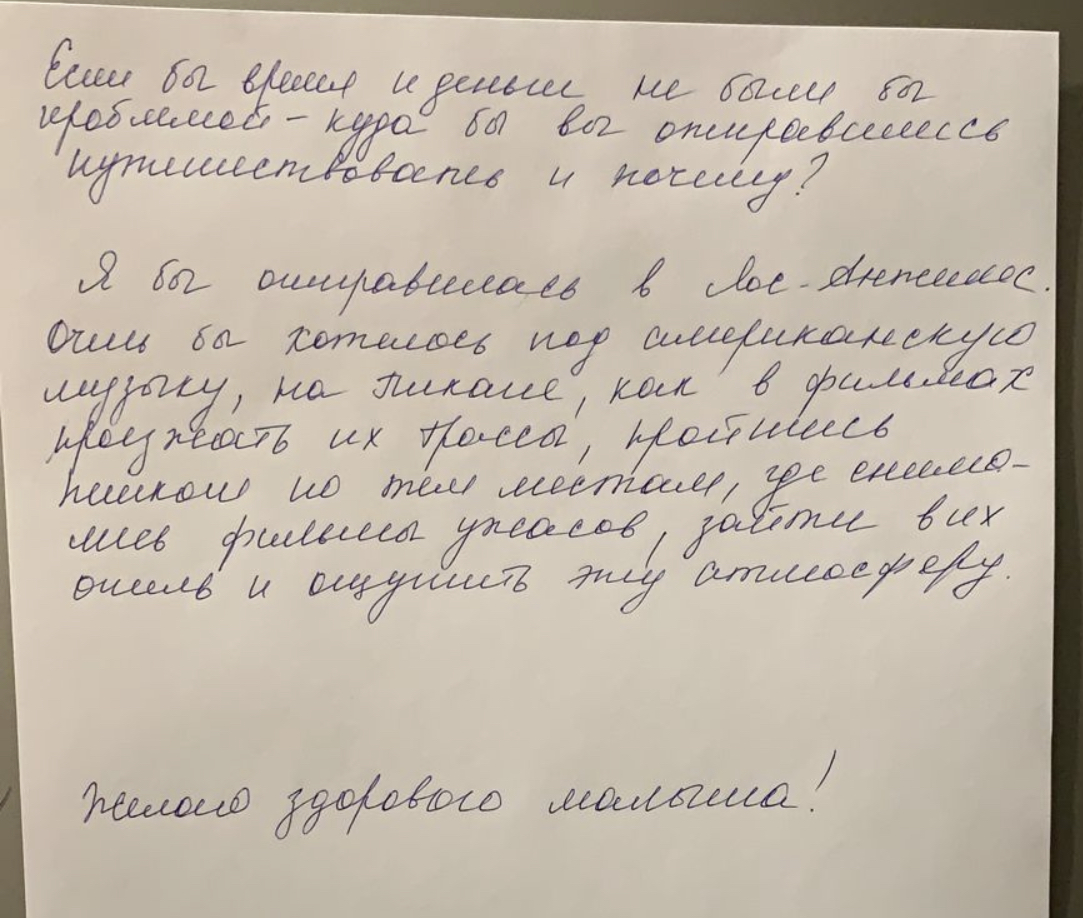 Если бы время и деньги не были бы
проблемой - куда бы вы отправились
путешествовать и почему?
Я бы отправилась в Лос-Анжелес.
Очень бы хотелось под американскую
музыку, на Пикапе, как в фильмах
проезжать их трассы, пройтись
пешком по тем местам, где снима-
лись фильмы ужасов, зайти в их
отель и ощутить эту атмосферу.
Желаю здорового малыша!